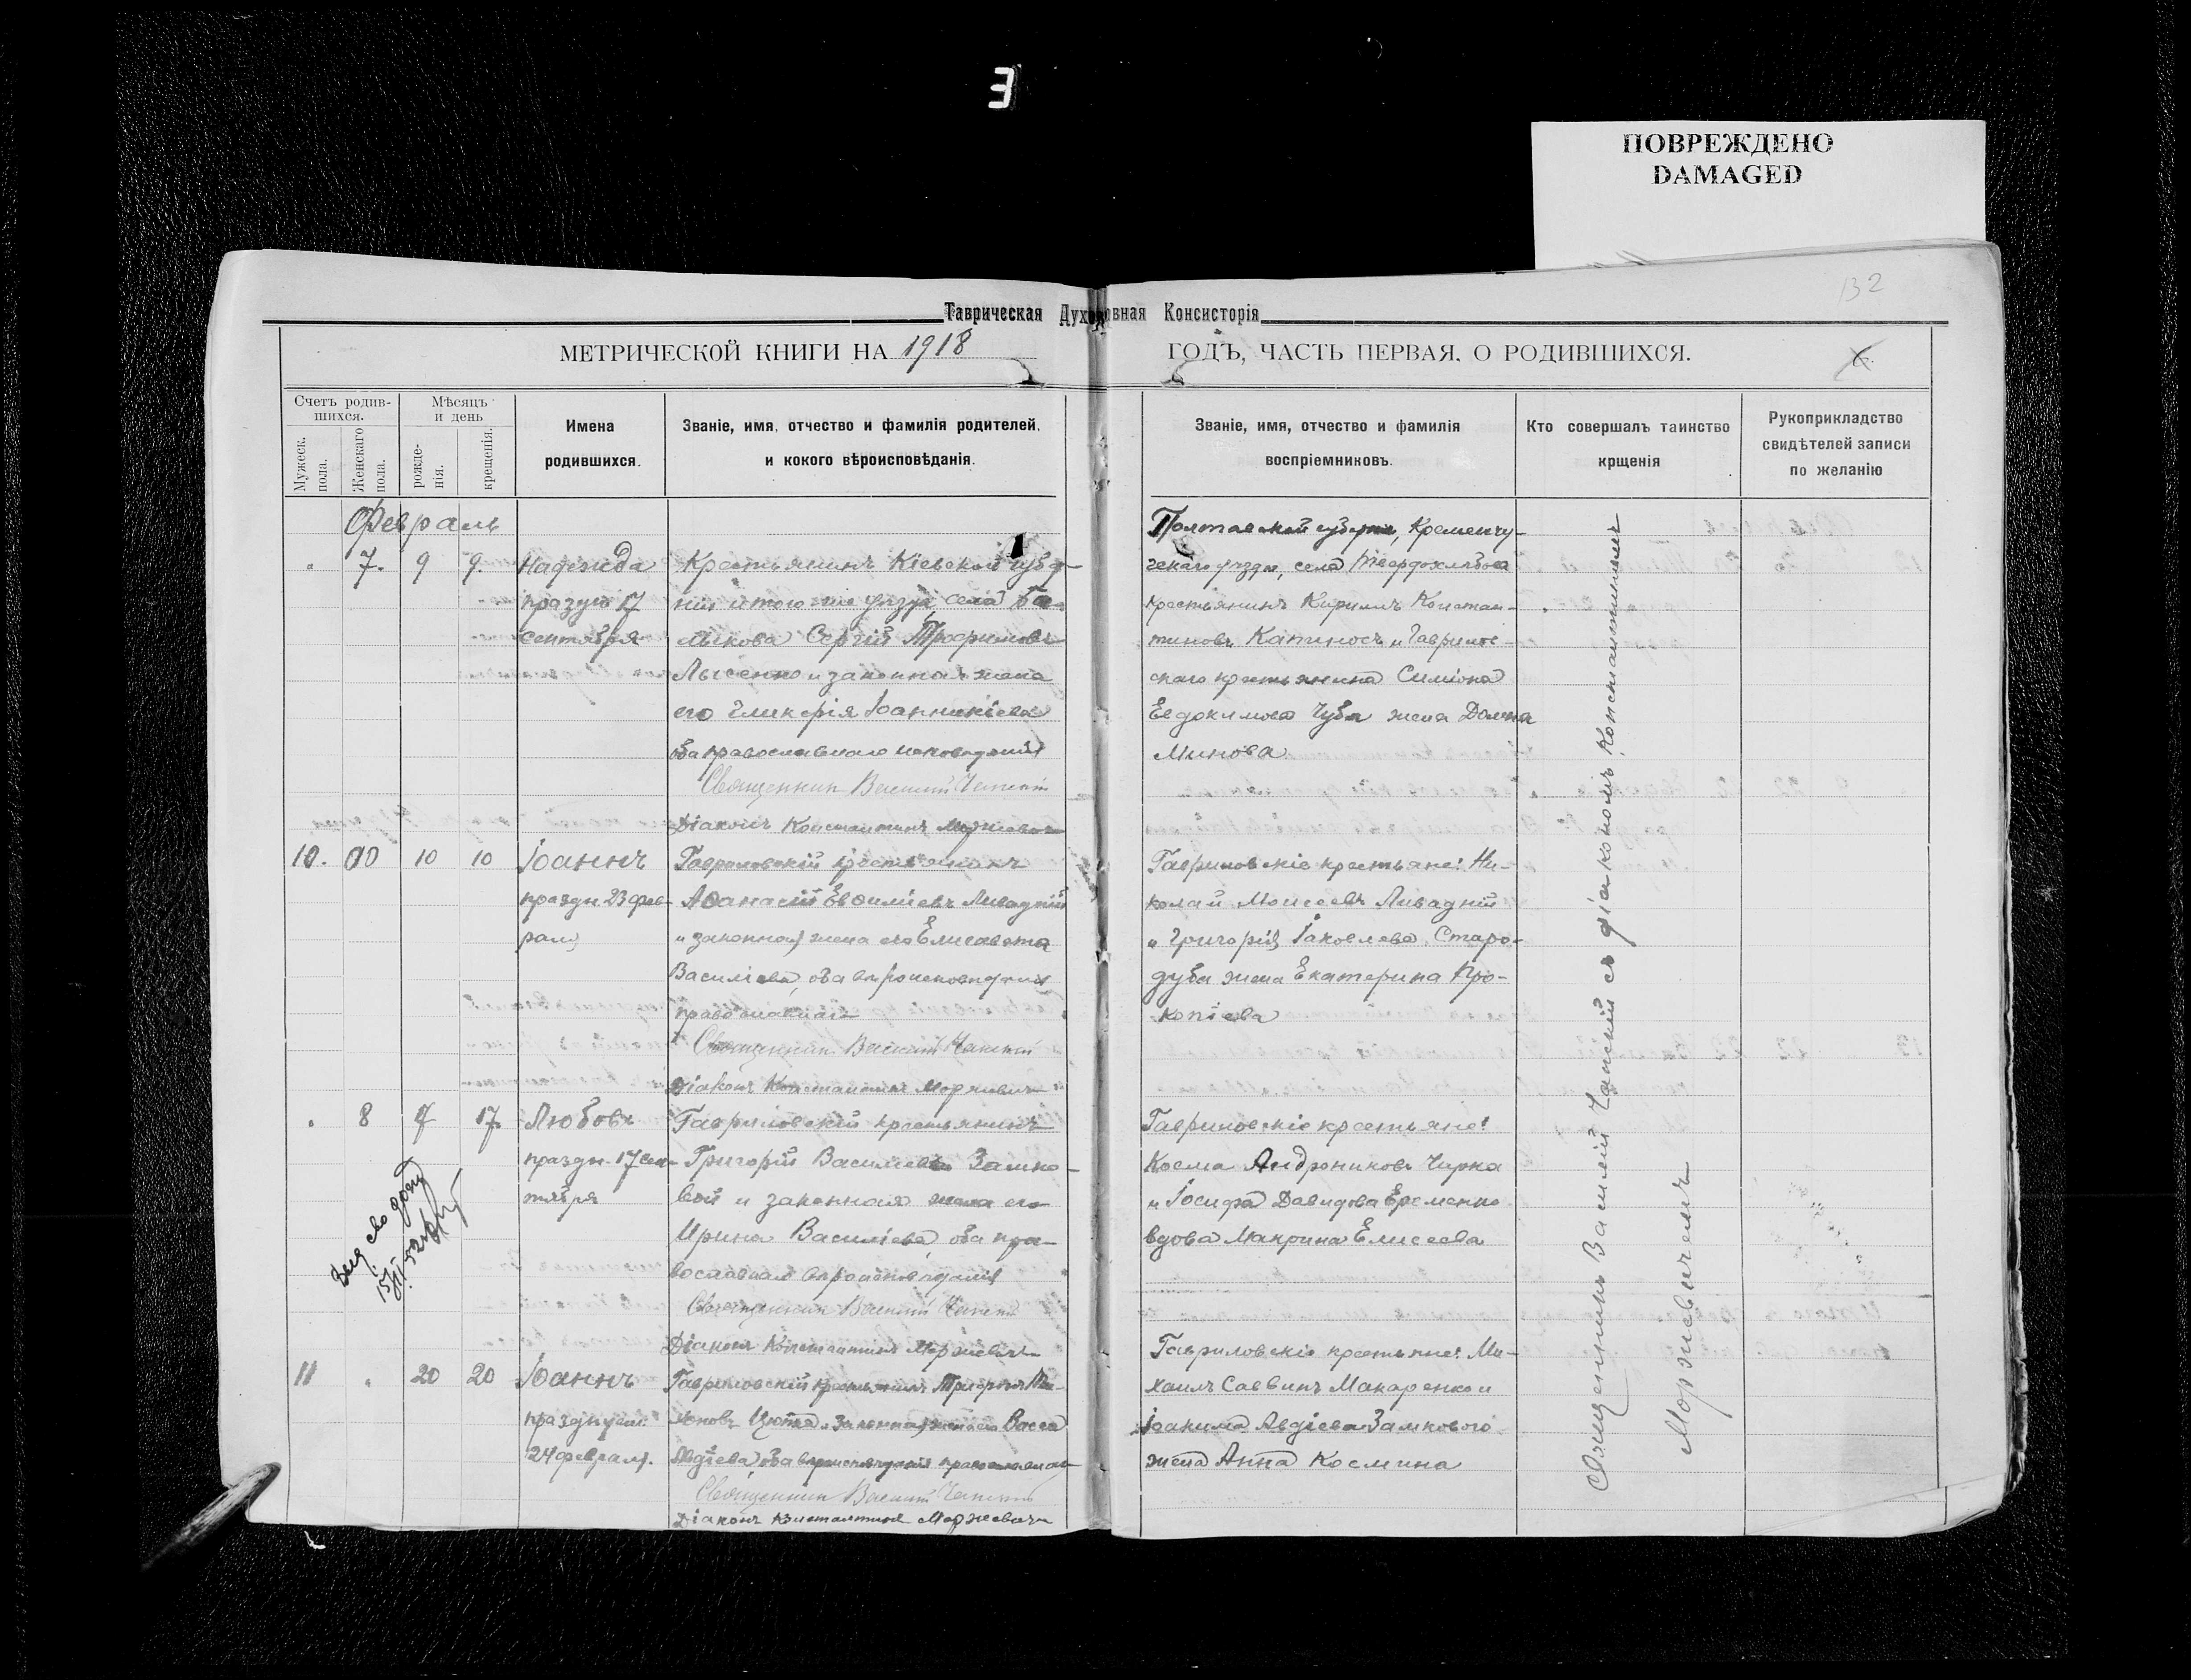 ПОВРЕЖДЕНО
DAMAGED
132
Таврическая Духовная Консисторія
МЕТРИЧЕСКОЙ КНИГИ НА 1918 ГОДЪ, ЧАСТЬ ПЕРВАЯ, О РОДИВШИХСЯ.
Счетъ родив-
шихся.
Мужеск.
пола.
Женскаго
пола.
Мѣсяцъ
и день
рожде-
нія.
крещенія.
Имена
родившихся.
Званіе, имя, отчество и фамилія родителей,
и кокого вѣроисповѣданія.
Званіе, имя, отчество и фамилія
воспріемниковъ.
Кто совершалъ таинство
крщенія
Рукоприкладство
свидѣтелей записи
по желанію
Февраль
7. 9 9.
Надежда
празную 17
сентября
Крестьянинъ Кіевской губер-
ніи и того же уѣзда, села
Сергій Трофимовъ
Лысенко и законная жена
его Гликерія Іоанникіева
оба православнаго исповѣданія
Священникъ Василій Чапскій
Діаконъ Константинъ Моржевичъ
Полтавской губерніи, Кременчу-
гскаго уѣзда, села Твердохлѣбова
крестьянинъ Кириллъ Констан-
тиновъ Капиносъ и Гаврилов-
скаго крестьянина Симіона
Евдокимова Чуба жена Домна
Минова
10. 10 10
Іоаннъ
праздн. 23 фев-
раля
Гавриловскій крестьянинъ
Аѳанасій Евѳиміевъ Ливадній
и законная жена его Елисавета
Василіева, оба вѣроисповѣданія
православнаго
Священникъ Василій Чапскій
Діаконъ Константинъ Моржевичъ
Гавриловскіе крестьяне: Ни-
колай Моисеевъ Ливадній
и Григорія Іаковлева Старо-
дуба жена Екатерина Про-
копіева
8 17 17.
Любовь
праздн. 17 сен-
тября
Гавриловскій крестьянинъ
Григорій Василіевъ Замко-
вой и законная жена его
Ирина Василіева, оба пра-
вославнаго вѣроисповѣданія
Священникъ Василій Чапскій
Діаконъ Константинъ Моржевичъ
Гавриловскіе крестьяне:
Косма Андрониковъ Чирка
и Іосифа Давидова Еременко
вдова Макрина Елисеева
11 20 20
Іоаннъ
празднуем.
24 февраля.
Гавриловскій крестьянинъ
законная жена его Васса
Авдіева, оба вѣроисповѣданія православнаго
Священникъ Василій Чапскій
Діаконъ Константинъ Моржевичъ
Гавриловскіе крестьяне: Ми-
хаилъ Саввинъ Макаренко и
Іоакима Авдіева Замкового
жена Анна Космина
Священникъ Василій Чапскій съ діакономъ Константиномъ
Моржевичемъ